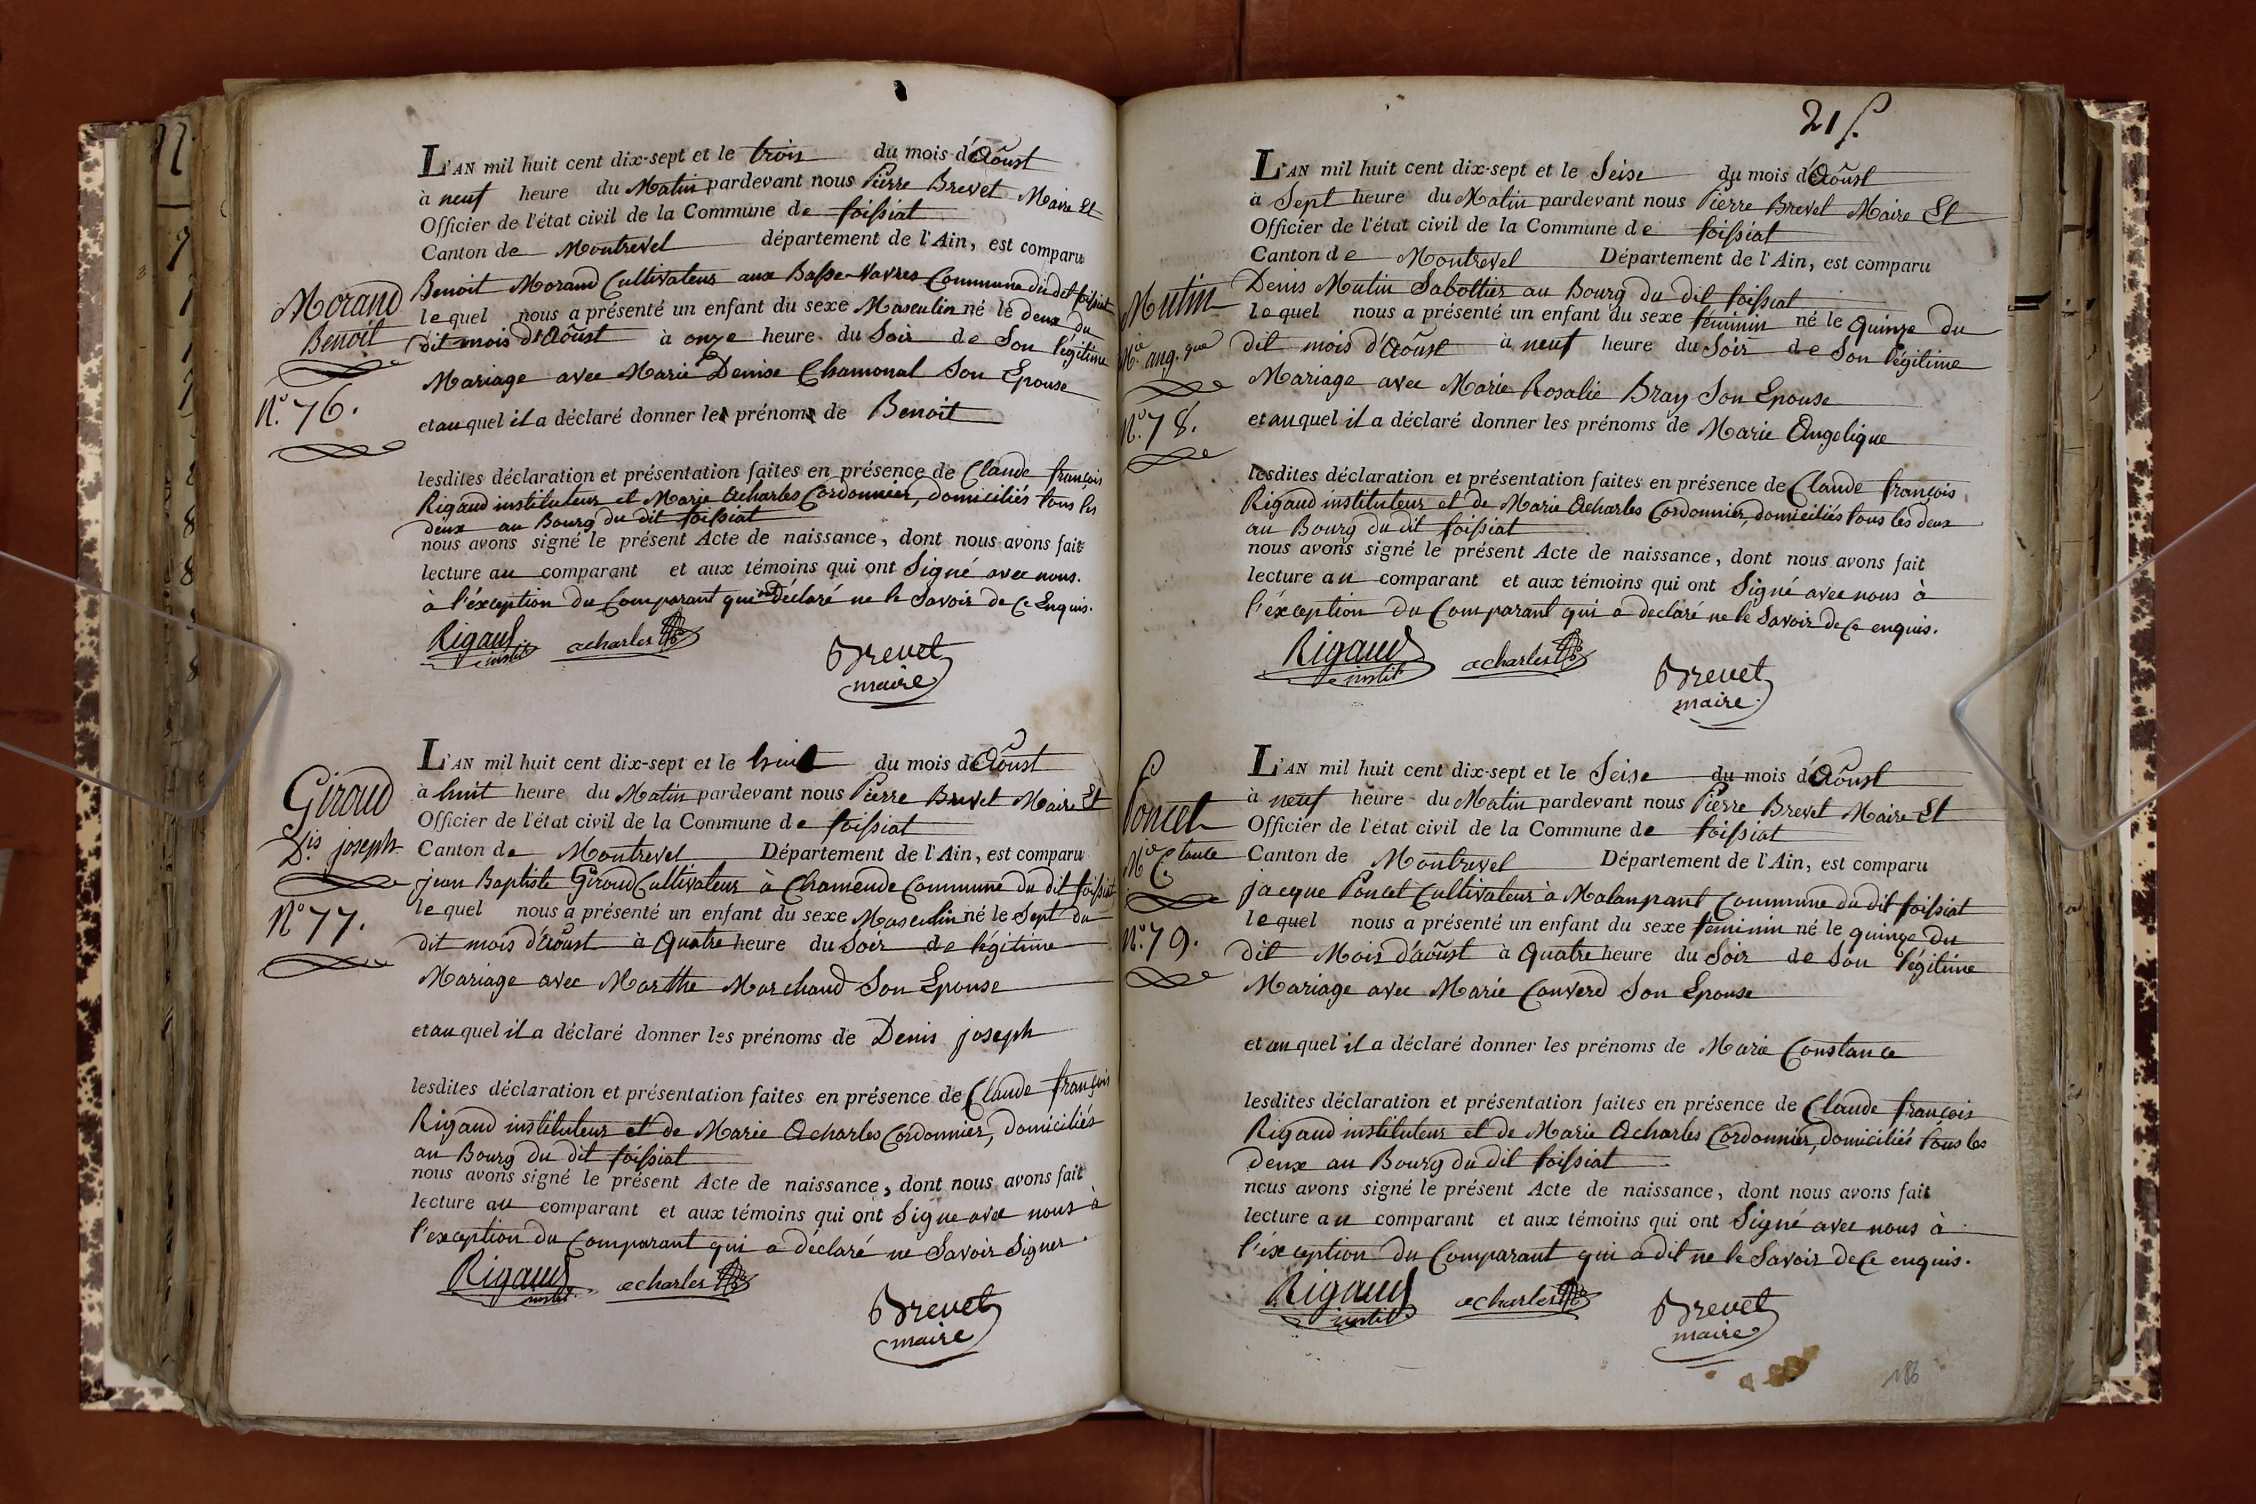 L'AN mil huit cent dix-sept et le trois du mois d'Aoûst
à neuf heure du Matin pardevant nous Pierre Brevet Maire Et
Officier de l'état civil de la Commune de foissiat
Canton de Montrevel département de l'Ain, est comparu
Benoit Morand Cultivateur aux Basse-Vavres Commune du dit foissiat
lequel nous a présenté un enfant du sexe Masculin né le deux du
dit mois d'Aoûst à onze heure du Soir de Son légitime
Mariage avec Marie Denise Chamonal Son Epouse
et auquel il a déclaré donner le prénom de Benoit
lesdites déclaration et présentation faites en présence de Claude françois
Rigaud instituteur et Marie Acharles Cordonnier, domiciliés tous les
deux au Bourg du dit foissiat
nous avons signé le présent Acte de naissance, dont nous avons fait
lecture au comparant et aux témoins qui ont Signé avec nous.
à l'éxception du Comparant qui a Déclaré ne le Savoir de Ce Enquis.
Rigaud instit acharles Brevet
maire
Morand
Benoit
N.° 76.
L'AN mil huit cent dix-sept et le huit du mois d'Aoûst
à huit heure du Matin pardevant nous Pierre Brevet Maire Et
Officier de l'état civil de la Commune de foissiat
Canton de Montrevel Département de l'Ain, est comparu
jean Baptiste Giroud Cultivateur à Chamende Commune du dit foissiat
lequel nous a présenté un enfant du sexe Masculin né le Sept du
dit mois d'Aoûst à Quatre heure du Soir de légitime
Mariage avec Marthe Marchand Son Epouse
et auquel il a déclaré donner les prénoms de Denis joseph
lesdites déclaration et présentation faites en présence de Claude françois
Rigaud instituteur et de Marie Acharles Cordonnier, domiciliés
au Bourg du dit foissiat
nous avons signé le présent Acte de naissance, dont nous avons fait
lecture au comparant et aux témoins qui ont Signé avec nous à
l'éxception du Comparant qui a déclaré ne Savoir Signer.
Rigaud instit. acharles Brevet
maire
Giroud
D.is joseph
N.° 77.
21
L'AN mil huit cent dix-sept et le Seise du mois d'Aoûst
à Sept heure du Matin pardevant nous Pierre Brevet Maire Et
Officier de l'état civil de la Commune de foissiat
Canton de Montrevel Département de l'Ain, est comparu
Denis Mutin Sabottier au Bourg du dit foissiat
lequel nous a présenté un enfant du sexe féminin né le Quinze du
dit mois d'Aoûst à neuf heure du Soir de Son légitime
Mariage avec Marie Rosalie Bray Son Epouse
et auquel il a déclaré donner les prénoms de Marie Angelique
lesdites déclaration et présentation faites en présence de Claude françois
Rigaud instituteur et de Marie Acharles Cordonnier, domiciliés tous les deux
au Bourg du dit foissiat
nous avons signé le présent Acte de naissance, dont nous avons fait
lecture au comparant et aux témoins qui ont Signé avec nous à
l'éxception du Comparant qui a declaré ne le Savoir de Ce enquis.
Rigaud instit acharles Brevet
maire
Mutin
M.ie ang.que
N.° 78.
L'AN mil huit cent dix-sept et le Seise du mois d'Aoûst
à neuf heure du Matin pardevant nous Pierre Brevet Maire Et
Officier de l'état civil de la Commune de foissiat
Canton de Montrevel Département de l'Ain, est comparu
jacque Poncet Cultivateur à Malanpant Commune du dit foissiat
lequel nous a présenté un enfant du sexe féminin né le quinze du
dit Mois d'aoûst à Quatre heure du Soir de Son légitime
Mariage avec Marie Converd Son Epouse
et auquel il a déclaré donner les prénoms de Marie Constance
lesdites déclaration et présentation faites en présence de Claude françois
Rigaud instituteur et de Marie Acharles Cordonnier, domiciliés tous les
deux au Bourg du dit foissiat
nous avons signé le présent Acte de naissance, dont nous avons fait
lecture au comparant et aux témoins qui ont Signé avec nous à
l'éxception du Comparant qui a dit ne le Savoir de Ce enquis.
Rigaud instit acharles Brevet
maire
Poncet
M.ie C.tance
N.° 79.
186